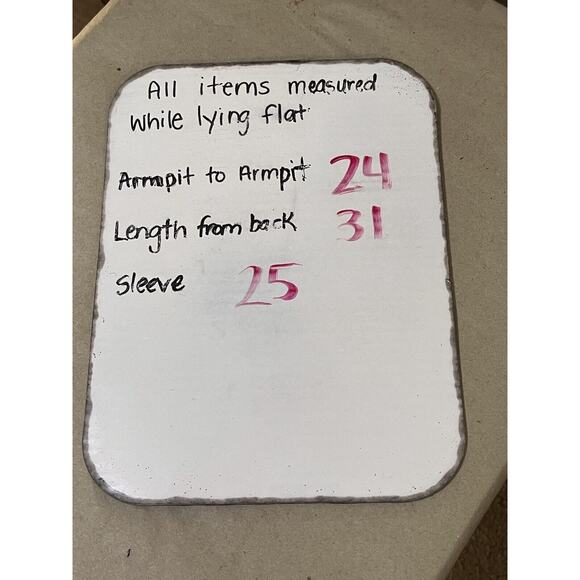 All items measured
while lying flat
Armpit to Armpit 24
Length from back 31
Sleeve 25